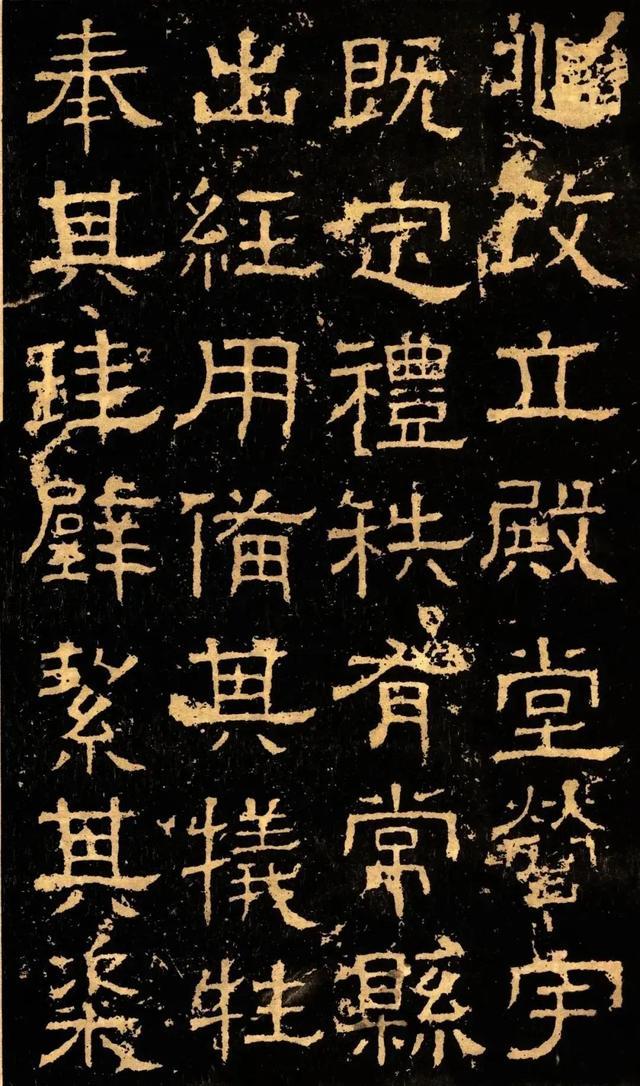 兆改立殿堂營宇
既定禮秩有常縣
出經用備其犧牲
奉其珪璧絜其粢